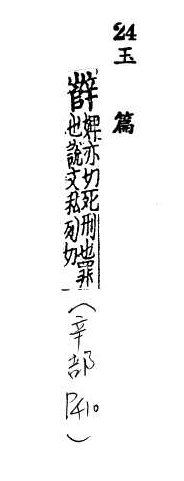 24玉篇
辥
婢亦切死刑也罪
也說文私列切
(辛部P410)